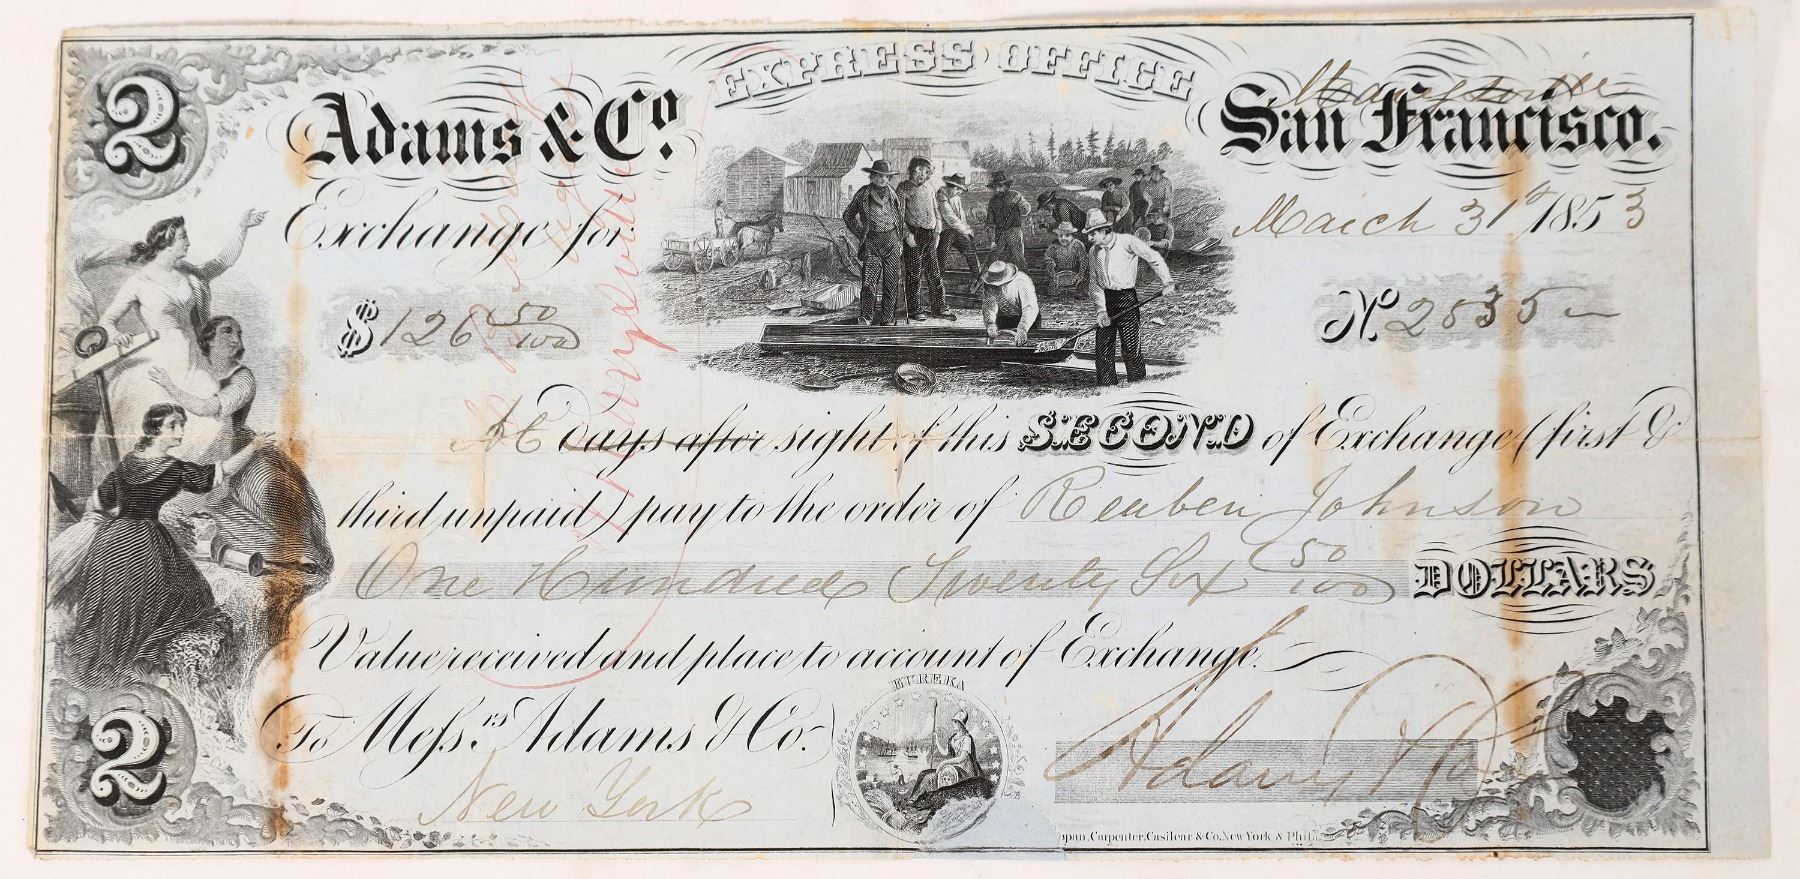 2
EXPRESS OFFICE
Marysville
Adams & Co.
San Francisco.
Exchange for
March 31st 1853
$ 126 50/100
No 2535
Marysville
At days after sight of this SECOND of Exchange (first &
third unpaid) pay to the order of Reuben Johnson
One Hundred Twenty Six 50/100 DOLLARS.
Value received and place to account of Exchange.
To Messrs. Adams & Co.
New York
EUREKA
Adams & Co
2
Carpenter, Casilear & Co. New York & Phil